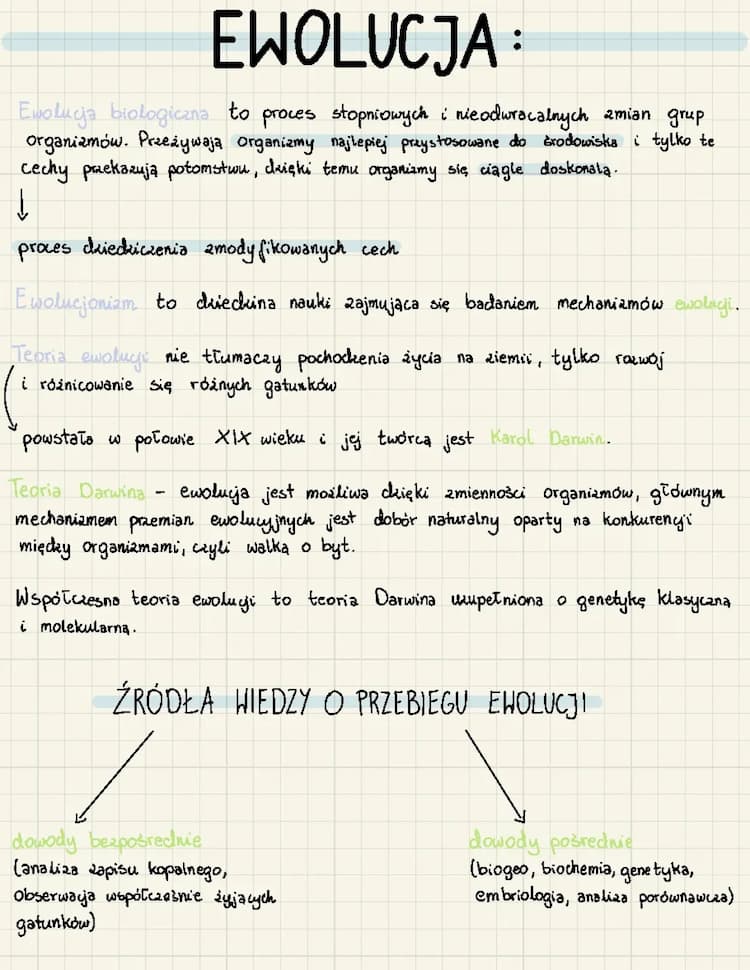 EWOLUCJA:
Ewolucja biologiczna to proces stopniowych i nieodwracalnych zmian grup
organizmów. Przeżywają organizmy najlepiej przystosowane do środowiska i tylko te
cechy przekazują potomstwu, dzięki temu organizmy się ciągle doskonalą.
proces dziedziczenia zmodyfikowanych cech
Ewolucjonizm to dziedzina nauki zajmująca się badaniem mechanizmów ewolucji.
Teoria ewolucji nie tłumaczy pochodzenia życia na ziemii, tylko rozwój
i różnicowanie się różnych gatunków
powstała w połowie XIX wieku i jej twórcą jest Karol Darwin.
Teoria Darwina - ewolucja jest możliwa dzięki zmienności organizmów, głównym
mechanizmem przemian ewolucyjnych jest dobór naturalny oparty na konkurencji
między organizmami, czyli walką o byt.
Współczesna teoria ewolucji to teoria Darwina uzupełniona o genetykę klasyczną
i molekularną.
ŹRÓDŁA WIEDZY O PRZEBIEGU EWOLUCJI
dowody bezpośrednie
(analiza zapisu kopalnego,
obserwacja współcześnie żyjących
gatunków)
dowody pośrednie
(biogeo, biochemia, genetyka,
embriologia, analiza porównawcza)